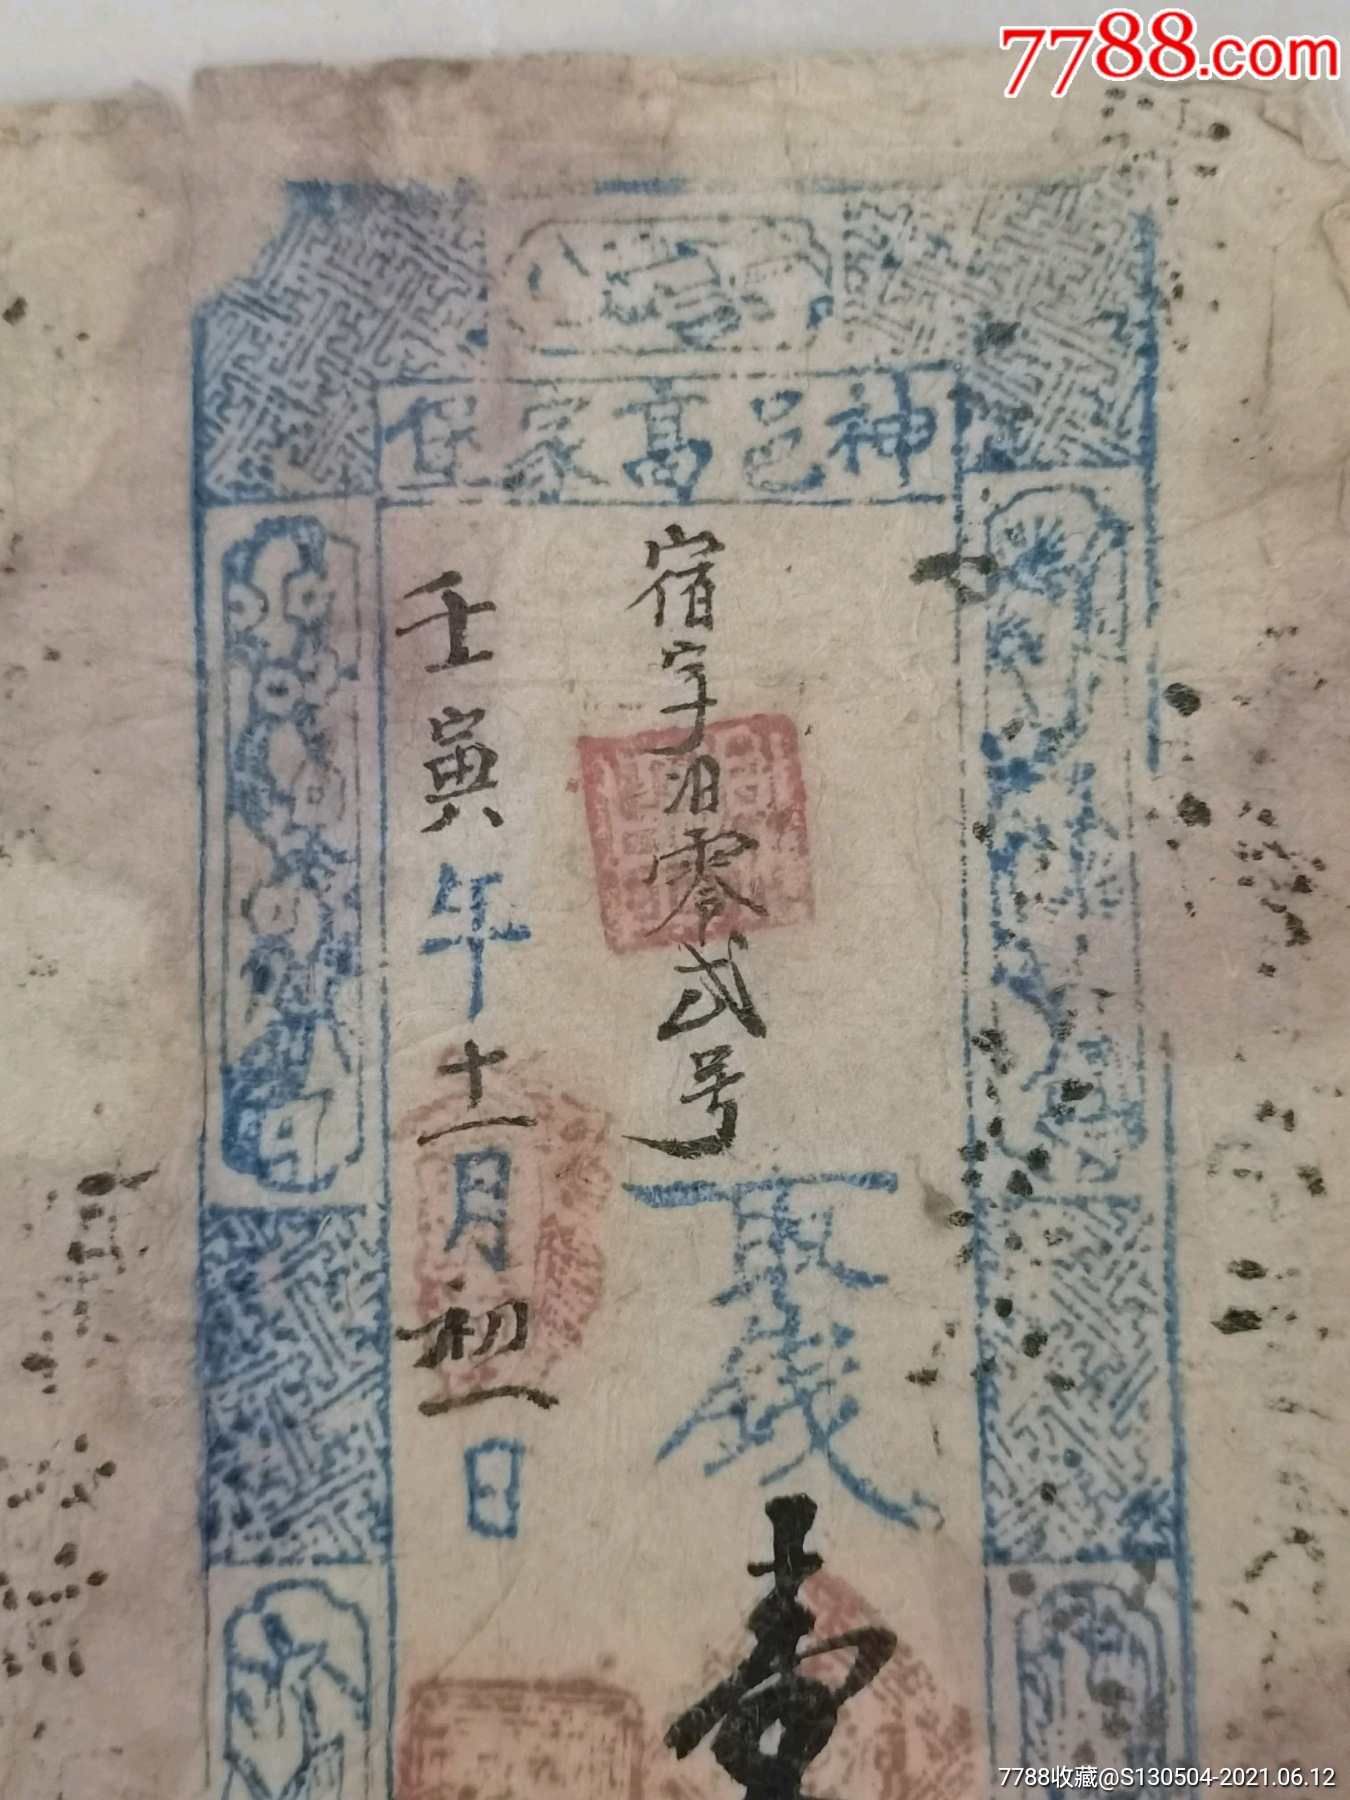 7788.com
神邑高家堡
宿字汨零弍号
取錢壹
壬寅年十一月初一日
7788收藏@S130504-2021.06.12